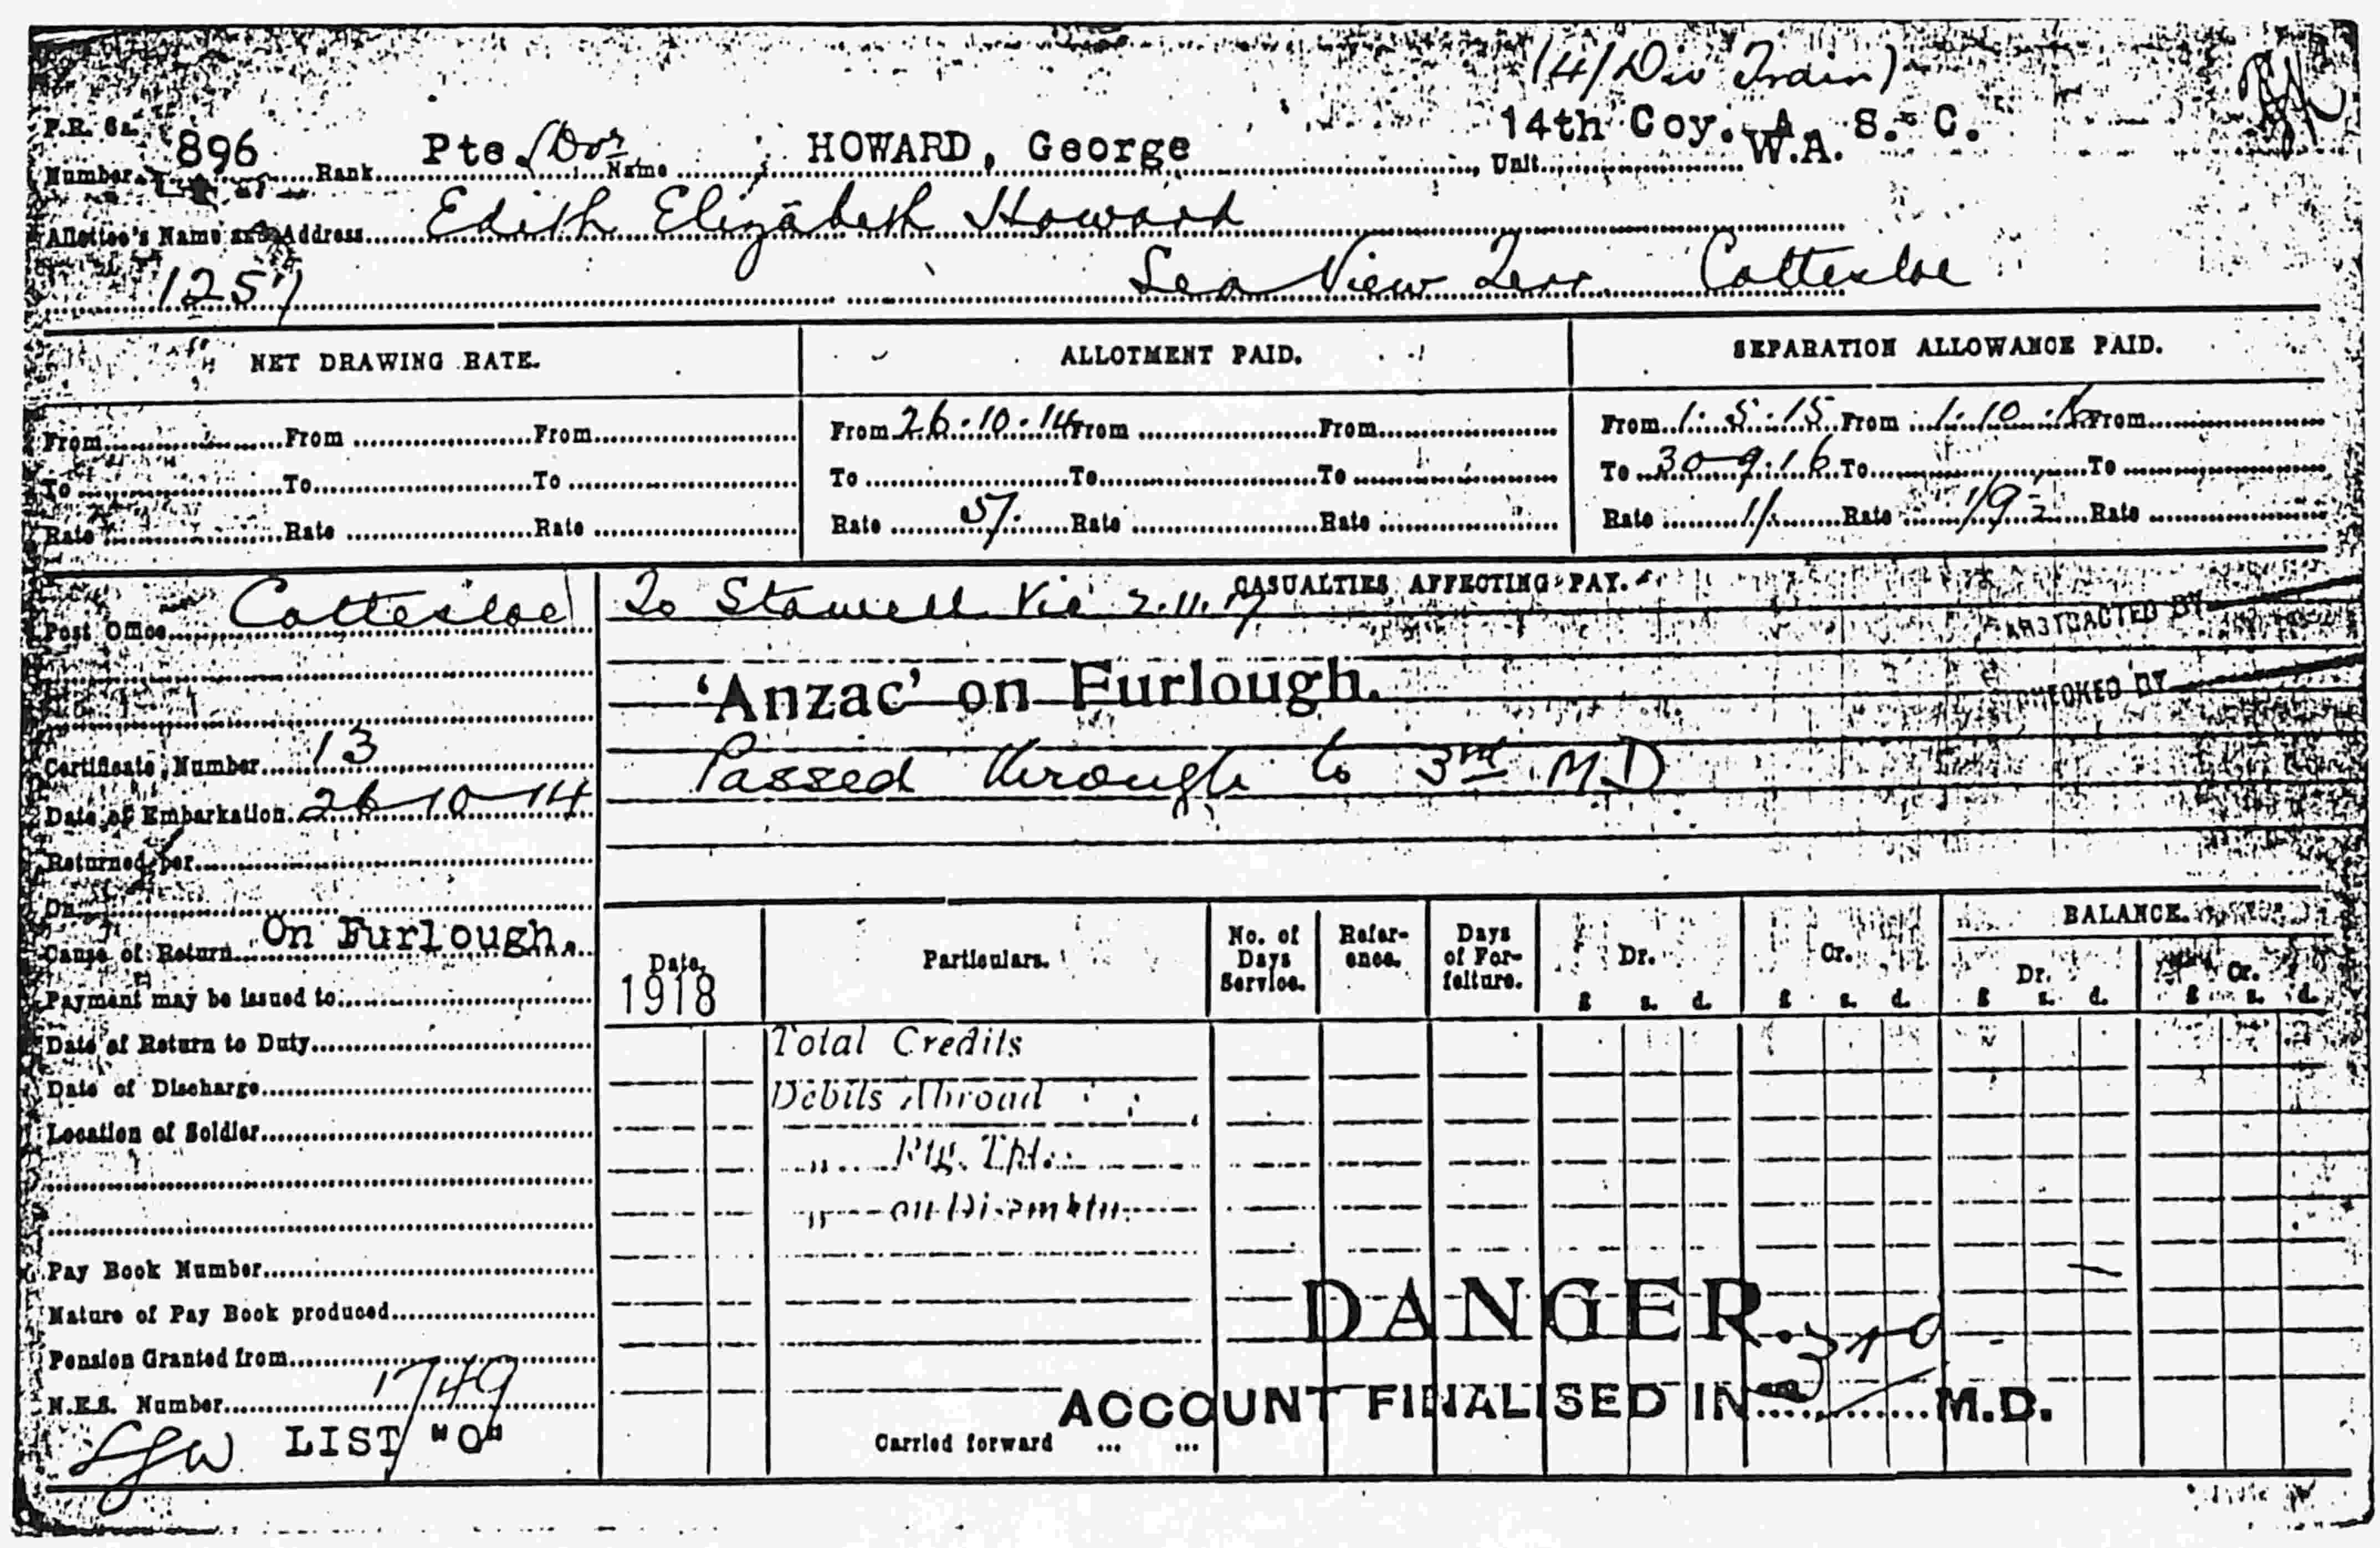 (4/Div Train)
P.R. 6a.
Number 896 Rank Pte. (Dvr Name HOWARD, George Unit 14th Coy. A. S. C.
W.A.
Allottee's Name and Address Edith Elizabeth Howard
1257 Sea View Terr. Cottesloe
NET DRAWING RATE. ALLOTMENT PAID. SEPARATION ALLOWANCE PAID.
From From From From 26.10.14 From From From 1.5.15 From 1.10.16 From
To To To To To To To 30.9.16 To To
Rate Rate Rate Rate 5/. Rate Rate Rate 1/. Rate 1/9 Rate
Post Office Cottesloe
Certificate Number 13
Date of Embarkation 26-10-14
Returned per
On
Cause of Return On Furlough.
Payment may be issued to
Date of Return to Duty
Date of Discharge
Location of Soldier
Pay Book Number
Nature of Pay Book produced
Pension Granted from
N.E.S. Number 1749
LIST "O"
CASUALTIES AFFECTING PAY.
To Stawell Vic 2.11.17
ABSTRACTED BY
'Anzac' on Furlough.
CHECKED BY
Passed through to 3rd M D
Date. Particulars. No. of Days Service. Reference. Days of Forfeiture. Dr. Cr. BALANCE.
Dr. Cr.
1918 £ s. d. £ s. d. £ s. d. £ s. d.
Total Credits
Debits Abroad
" Rtg. Tpt.
" on Disembktn.
DANGER.
ACCOUNT FINALISED IN 3rd M.D.
Carried forward ... ...